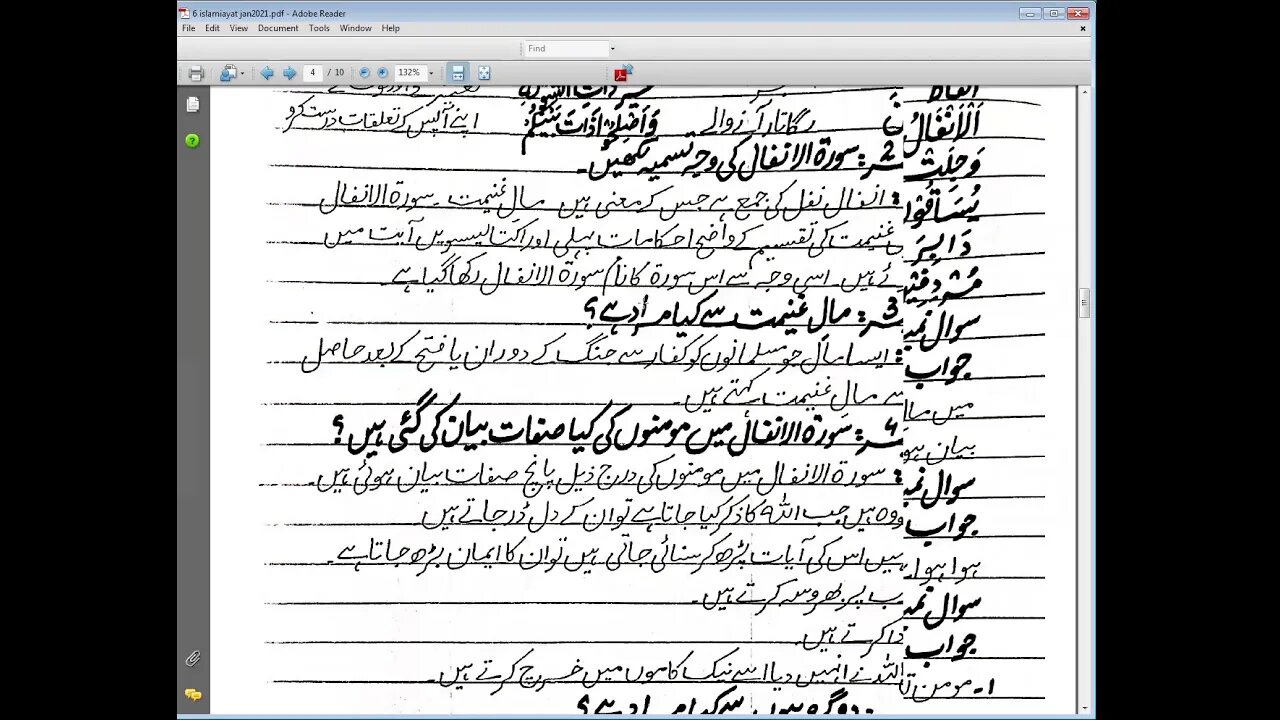 6 islamiayat jan2021.pdf - Adobe Reader
File Edit View Document Tools Window Help
Find
4 / 10 132%
اَلْاَنْفَالُ لگاتار آنے والے وَاَصْلِحُوْا ذَاتَ بَیْنِکُمْ اپنے آپس کے تعلقات درست کرو
وَجِلَتْ 2: سورۃ الانفال کی وجہ تسمیہ لکھیں۔
یُسَاقُوْنَ : انفال نفل کی جمع ہے جس کے معنی ہیں مال غنیمت۔ سورۃ الانفال
دَابِرَ غنیمت کی تقسیم کے واضح احکامات پہلی اور اکتالیسویں آیت میں
ئے ہیں۔ اسی وجہ سے اس سورۃ کا نام سورۃ الانفال رکھا گیا ہے۔
سوال نمبر 3: مالِ غنیمت سے کیا مراد ہے؟
جواب : ایسا مال جو مسلمانوں کو کفار سے جنگ کے دوران یا فتح کے بعد حاصل
میں مال غنیمت کہتے ہیں۔
4: سورۃ الانفال میں مومنوں کی کیا صفات بیان کی گئی ہیں؟
بیان
سوال نمبر : سورۃ الانفال میں مومنوں کی درج ذیل پانچ صفات بیان ہوئی ہیں۔
جواب وہ ہیں جب اللہ کا ذکر کیا جاتا ہے تو ان کے دل ڈر جاتے ہیں
ہوا ہوا۔ اس کی آیات پڑھ کر سنائی جاتی ہیں تو ان کا ایمان بڑھ جاتا ہے۔
سوال نمبر پر بھروسہ کرتے ہیں۔
جواب کرتے ہیں۔
۱۔ مومن اللہ نے انہیں دیا اسے نیک کاموں میں خرچ کرتے ہیں۔